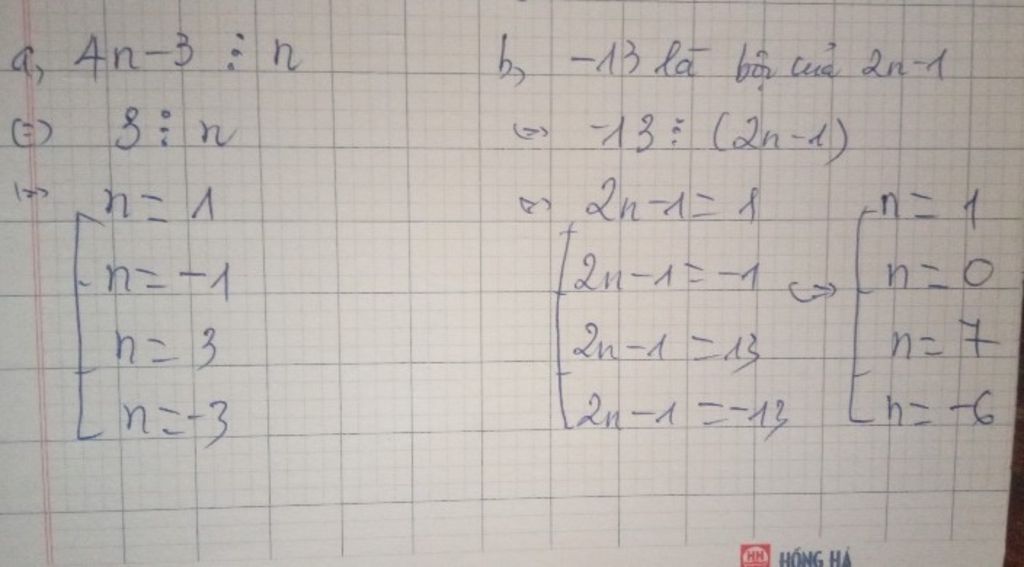 a, 4n-3 ⋮ n
⇔ 3 ⋮ n
⇔ n = 1
n = -1
n = 3
n = -3
b, -13 là bội của 2n-1
⇔ -13 ⋮ (2n-1)
⇔ 2n-1 = 1
2n-1 = -1
2n-1 = 13
2n-1 = -13
⇔ n = 1
n = 0
n = 7
n = -6
HH HỒNG HÀ